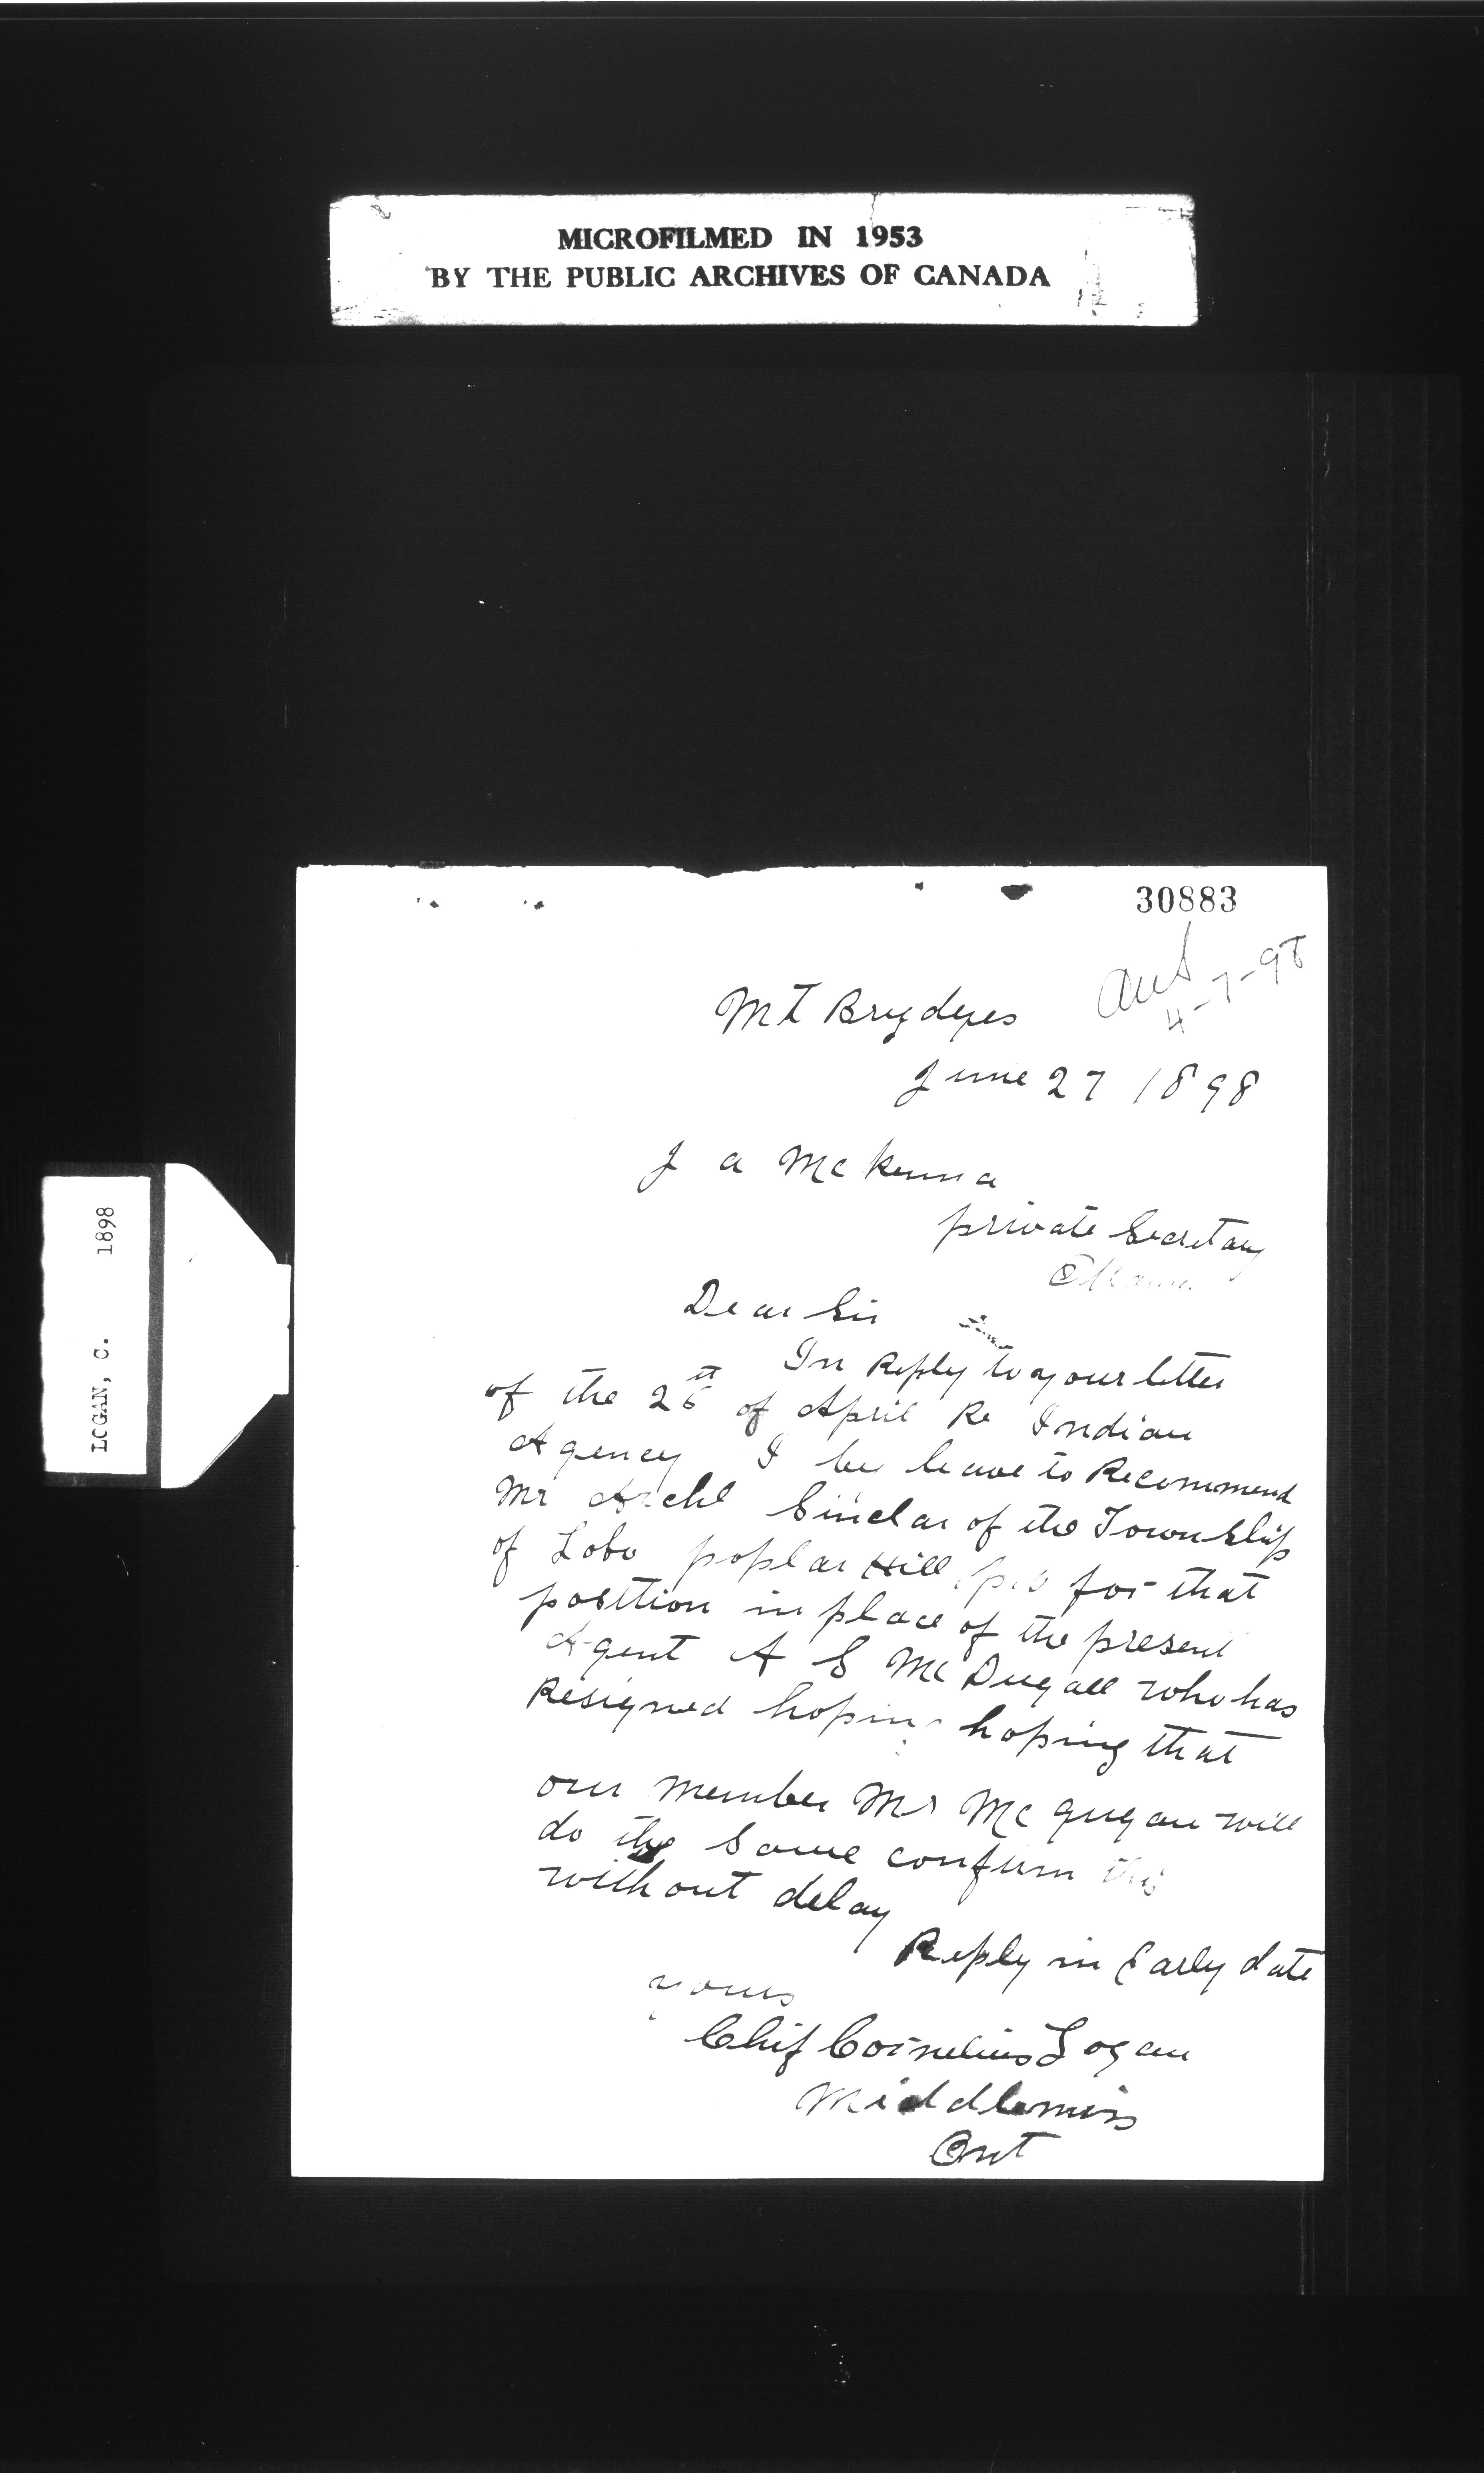 MICROFILMED IN 1953
BY THE PUBLIC ARCHIVES OF CANADA
LOGAN, C. 1898
30883
Ans
4-7-98
Mt Brydges
June 27 1898
J a McKenna
private Secretary
Ottawa
Dear Sir
In Reply to your letter
of the 26th of April Re Indian
Agency I be leave to Recommend
Mr Archl Sinclar of the Township
of Lobo poplar Hill p.o for that
position in place of the present
Agent A S McDugall who has
Resigned hoping hoping that
our member Mr Mc gugan will
do the same confirm this
without delay
Reply in Early date
yours
Chif Cornelius Logan
Middlemiss
Ont